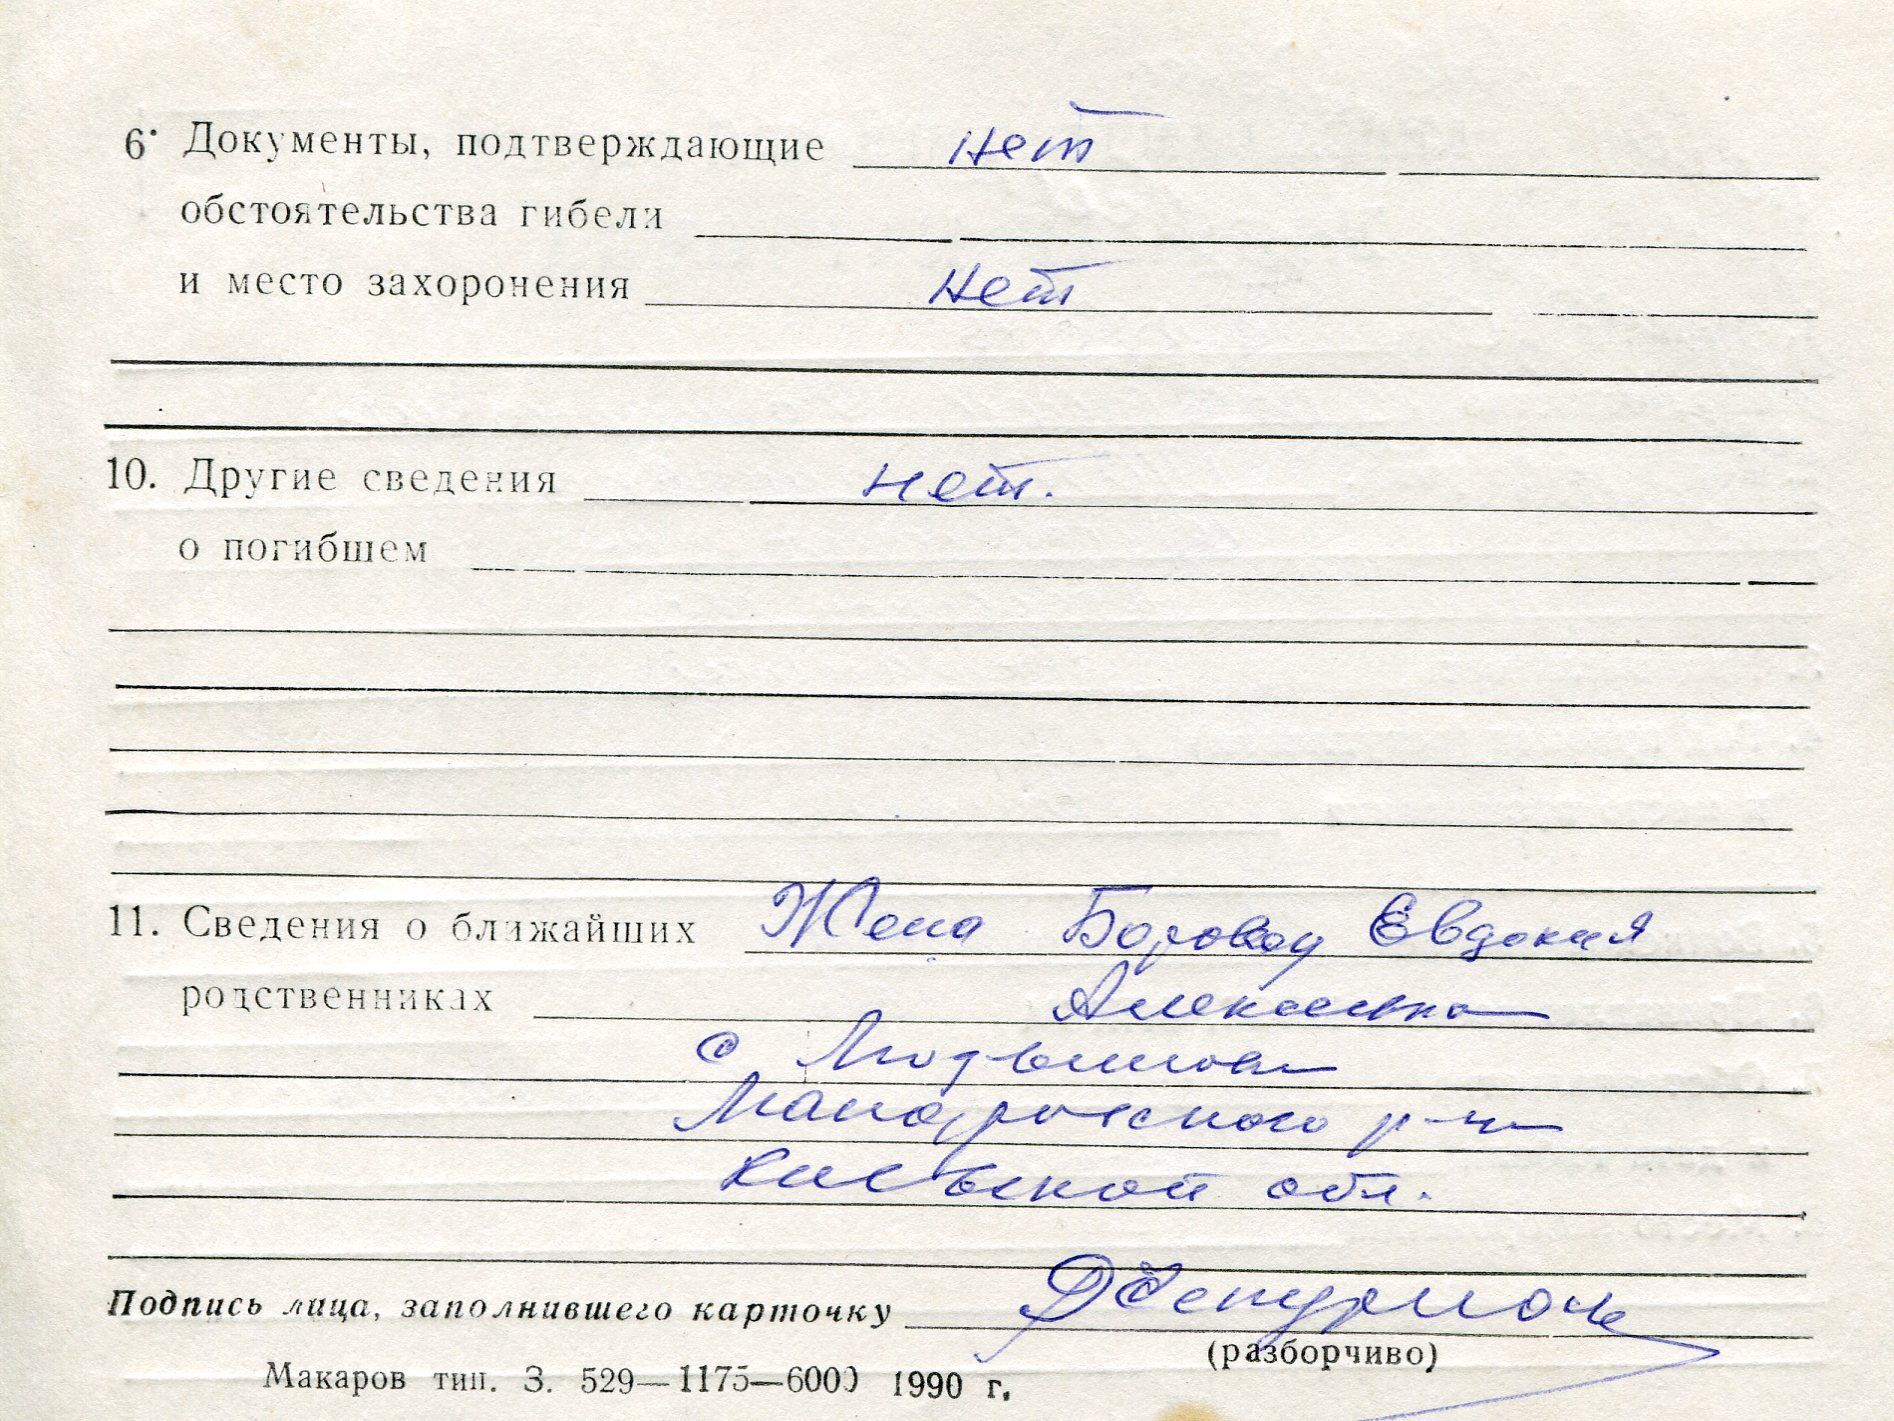 6. Документы, подтверждающие нет
обстоятельства гибели
и место захоронения нет
10. Другие сведения нет.
о погибшем
11. Сведения о ближайших Жена Боровод Евдокия
родственниках Алексеевна
с
Макаровского р-на
Киевской обл.
Подпись лица, заполнившего карточку
(разборчиво)
Макаров тип. З. 529—1175—6000 1990 г.